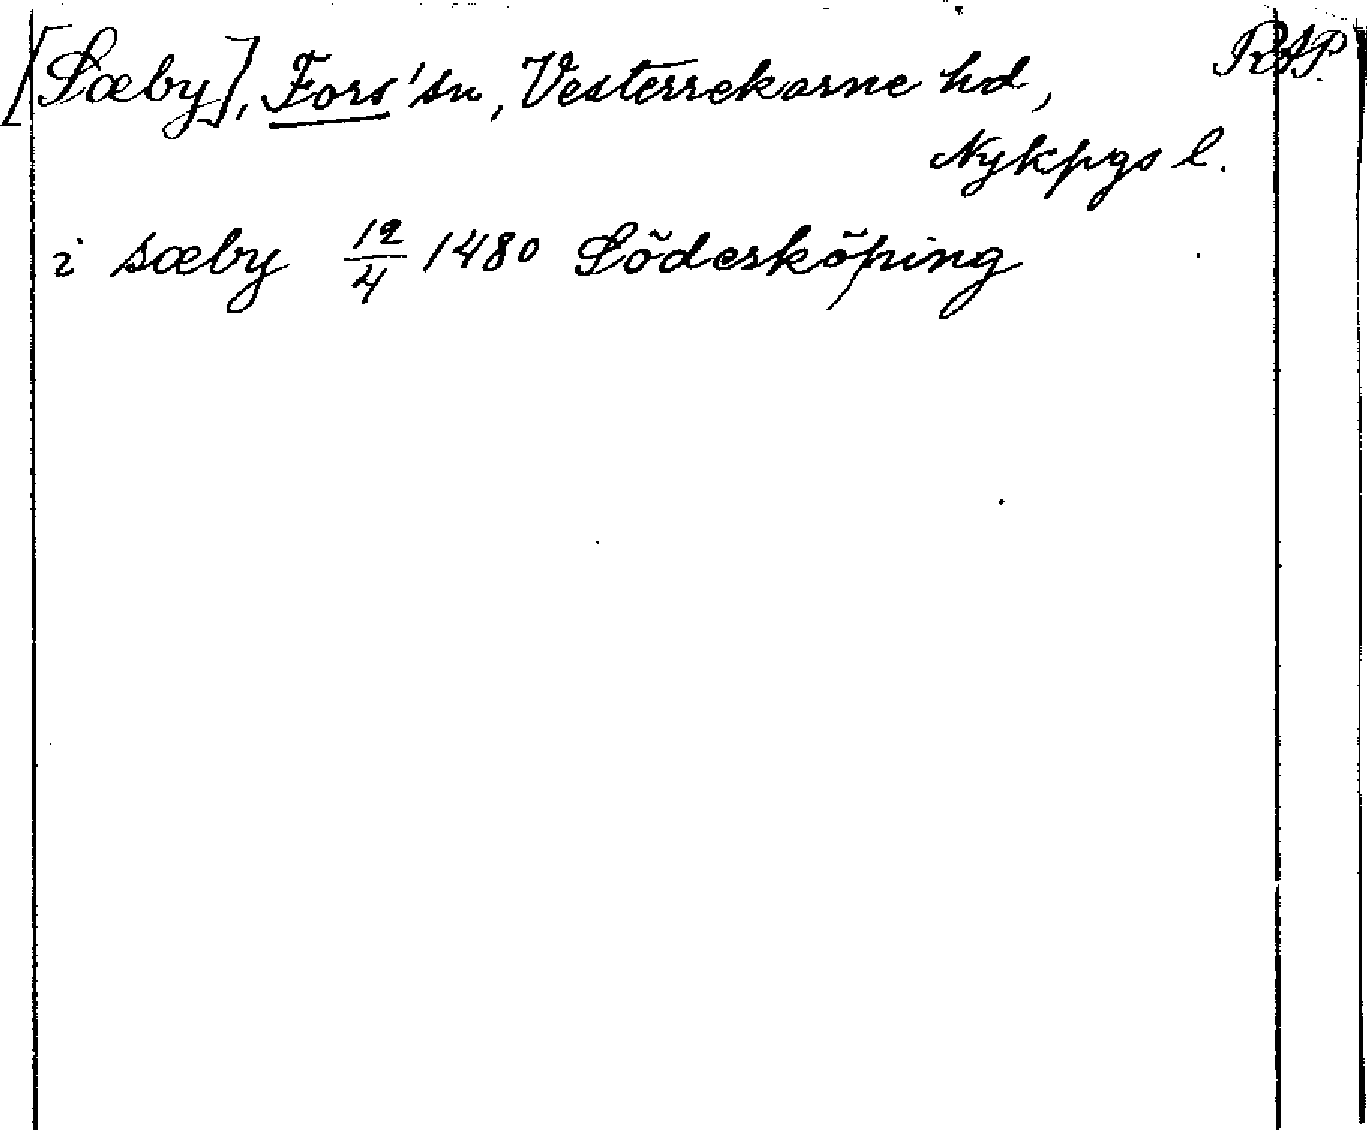 [Sæby], Fors sn, Vesterrekarne hd, RAP.
Nykpgs l.
i sæby 12/4 1480 Söderköping